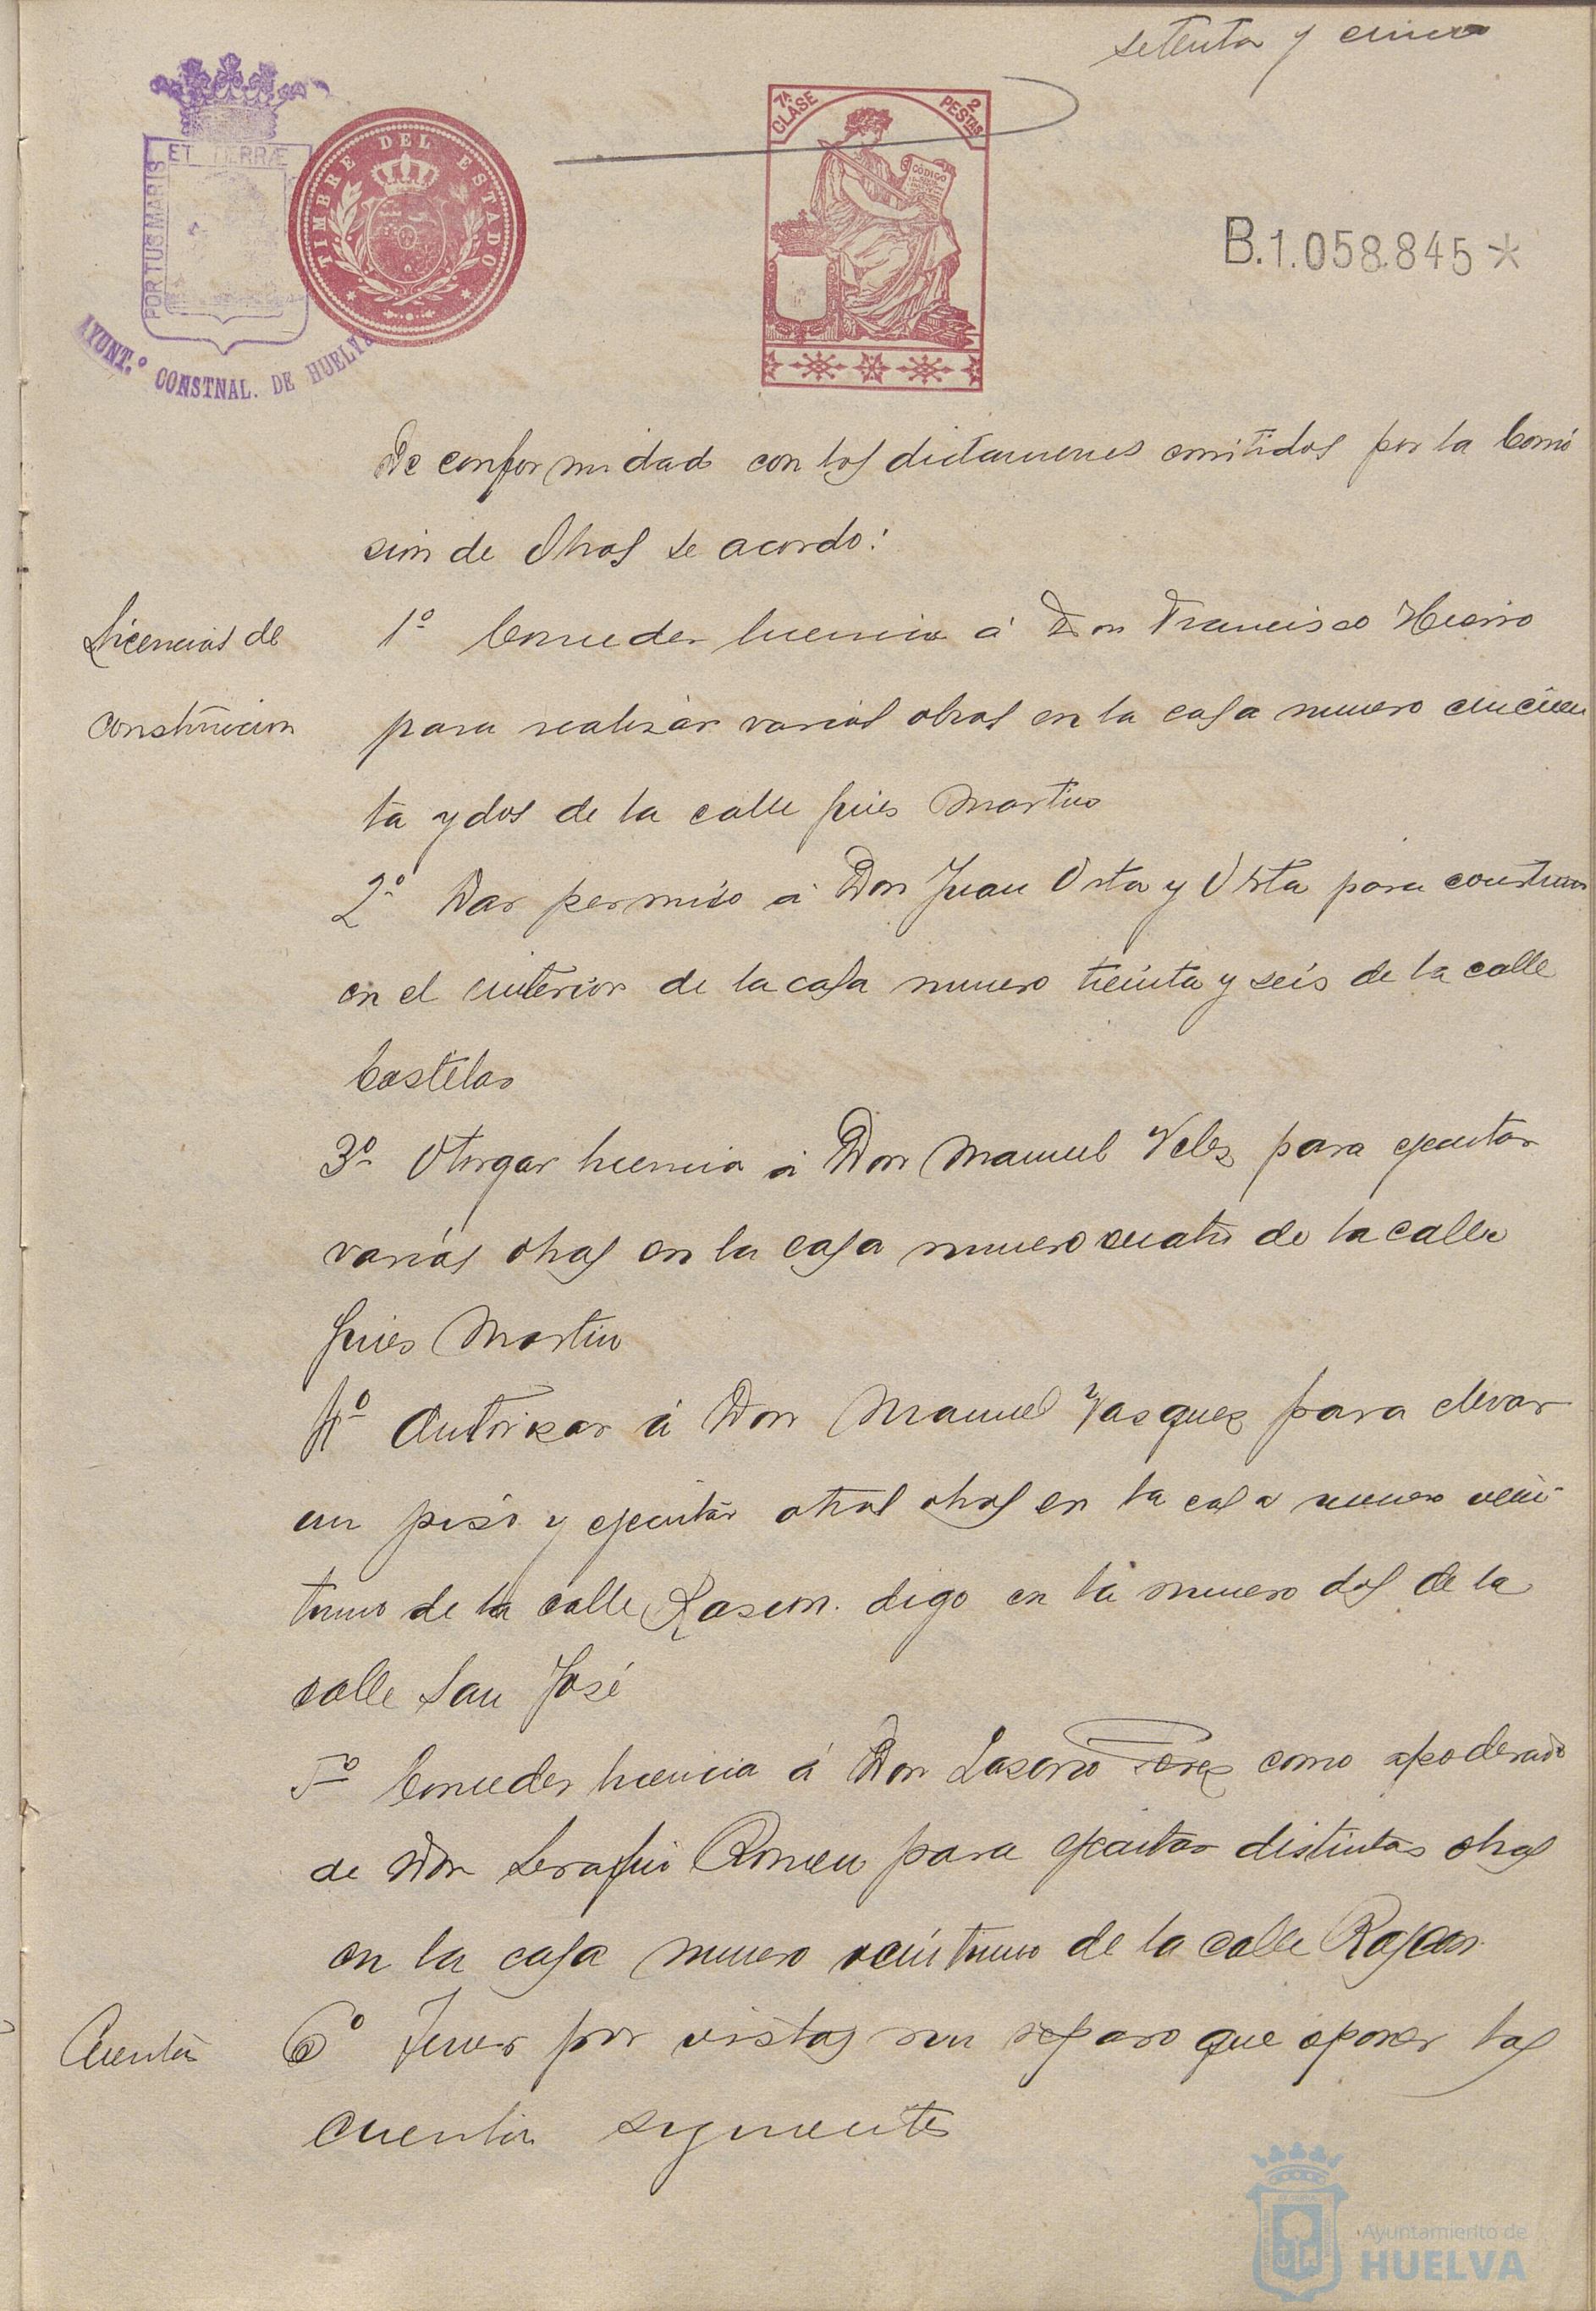 setenta y cinco
ET TERRÆ
PORTUS MARIS
AYUNT.º CONSTNAL. DE HUELVA
TIMBRE DEL ESTADO
7ª CLASE
2 PESTAS
CÓDIGO
B.1.058.845*
De conformidad con los dictamenes emitidos por la Comi
sion de Obras se acordo:
Licencias de
construccion
1º Conceder licencia á Don Francisco Hierro
para realizar varias obras en la casa numero cincuen
ta y dos de la calle Gines Martin
2º Dar permiso á Don Juan Orta y Orta para construir
en el interior de la casa numero treinta y seis de la calle
Castelar
3º Otorgar licencia á Don Manuel Velez para ejecutar
varias obras en la casa numero cuatro de la calle
Gines Martin
4º Autorizar á Don Manuel Vazquez para elevar
un piso y ejecutar otras obras en la casa numero vein-
tiuno de la calle Rascon. digo en la numero dos de la
calle San José
5º Conceder licencia á Don Lazaro Perez como apoderado
de Don Serafin Romeu para ejecutar distintas obras
en la casa numero veintiuno de la calle Rascon.
Cuentas
6º Tener por vistas sin reparo que oponer las
cuentas siguientes
Ayuntamiento de
HUELVA